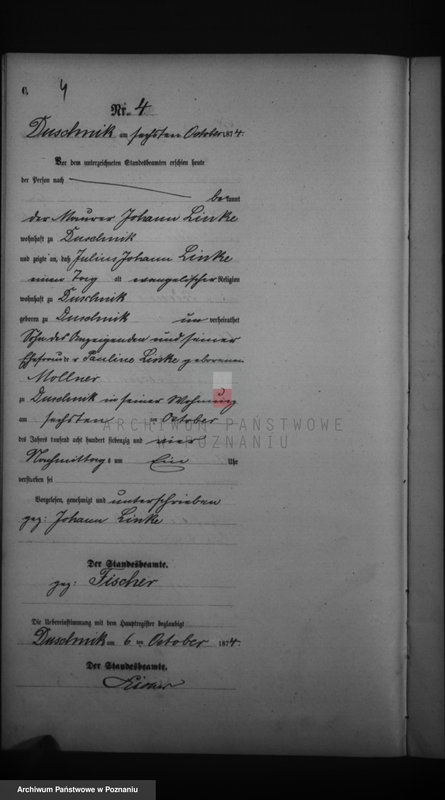 6
4
Nr. 4
Duschnik am sechsten October 1874.
Vor dem unterzeichneten Standesbeamten erschien heute
der Person nach
bekannt
der Maurer Johann Linke
wohnhaft zu Duschnik
und zeigte an, daß Julius Johann Linke
einen Tag alt evangelischer Religion
wohnhaft zu Duschnik
geboren zu Duschnik un verheirathet
Sohn des Anzeigenden und seiner
Ehefrau Pauline Linke geborenen
Mollner
zu Duschnik in seiner Wohnung
am sechsten October
des Jahres tausend acht hundert siebenzig und vier
Nachmittags um Ein Uhr
verstorben sei
Vorgelesen, genehmigt und unterschrieben
gez: Johann Linke
Der Standesbeamte.
gez: Fischer
Die Uebereinstimmung mit dem Hauptregister beglaubigt
Duschnik am 6 ten October 1874.
Der Standesbeamte.
Fischer
ARCHIWUM PAŃSTWOWE
W POZNANIU
Archiwum Państwowe w Poznaniu